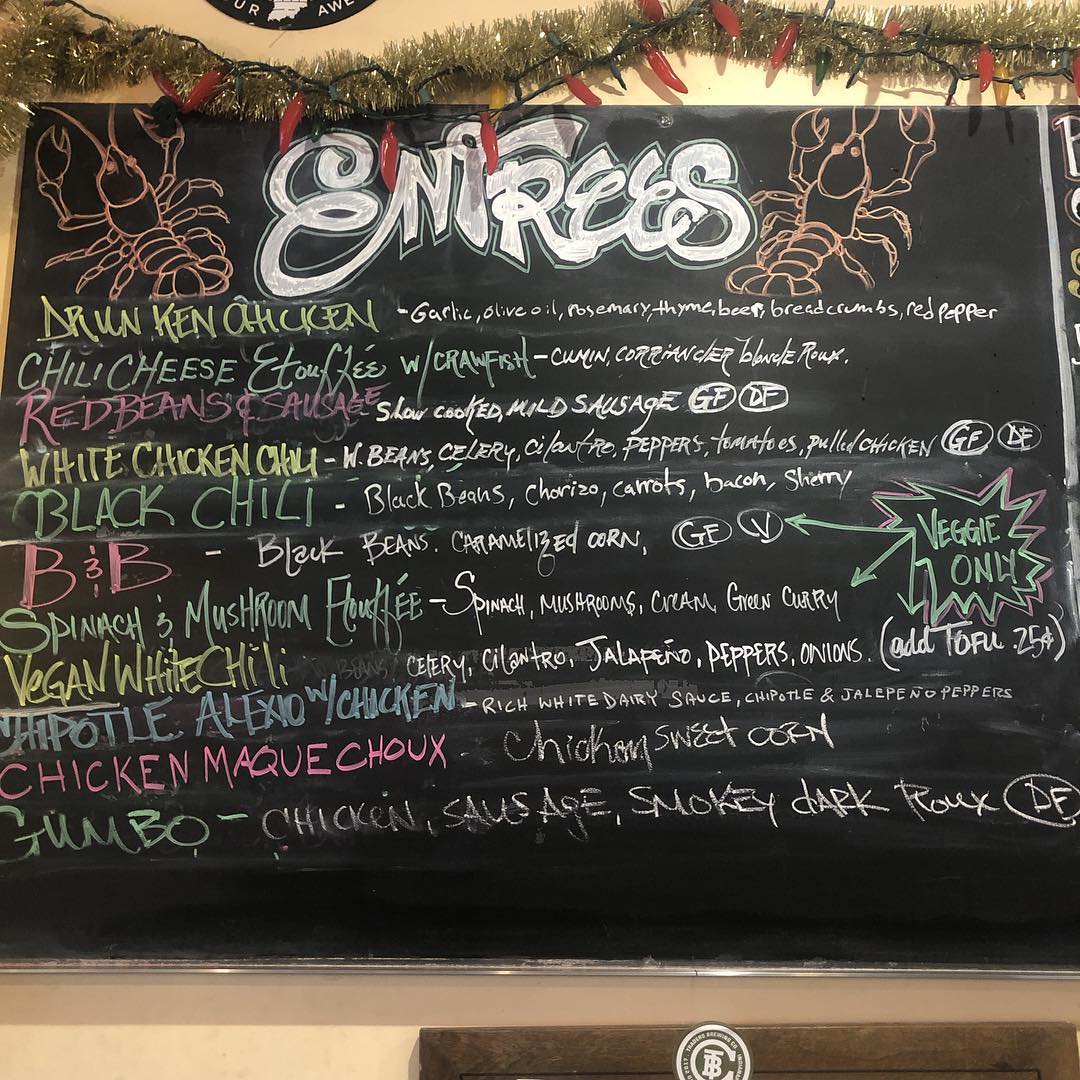 OUR AWE
ENTREES
DRUNKEN CHICKEN - Garlic, olive oil, rosemary, thyme, beer, breadcrumbs, red pepper
CHILI CHEESE Étouffée w/ CRAWFISH - CUMIN, CORRIANDER blonde Roux.
RED BEANS & SAUSAGE Slow cooked, MILD SAUSAGE GF DF
WHITE CHICKEN CHILI - W. BEANS, CELERY, Cilantro, PEPPERS, tomatoes, pulled CHICKEN GF DF
BLACK CHILI - Black Beans, Chorizo, carrots, bacon, Sherry
B & B - Black BEANS. CARAMElized CORN, GF V
VEGGIE
ONLY
SPINACH & MUSHROOM Etouffée - SPINACH, MUSHROOMS, CREAM, Green CURRY
VEGAN WHITE CHili BEANS, CElERY, Cilantro, JALAPEÑO, PEPPERS, ONIONS. (add TOFU .25¢)
CHIPOTLE ALEXIO W/ CHICKEN - RICH WHITE DAIRY SAUCE, CHIPOTLE & JALEPEÑO PEPPERS
CHICKEN MAQUE CHOUX - Chicken SWEET CORN
GUMBO - CHICKEN, SAUSAGE, SMOKEY dARK Roux DF
TRADERS BREWING CO